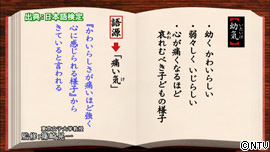 出典：日本語検定
幼気
いたいけ
・幼くかわいらしい
・弱々しく いじらしい
・心が痛くなるほど
哀れむべき子どもの様子
語源
「痛い気」
『かわいらしさが痛いほど強く
心に感じられる様子』から
きていると言われる
©NTV